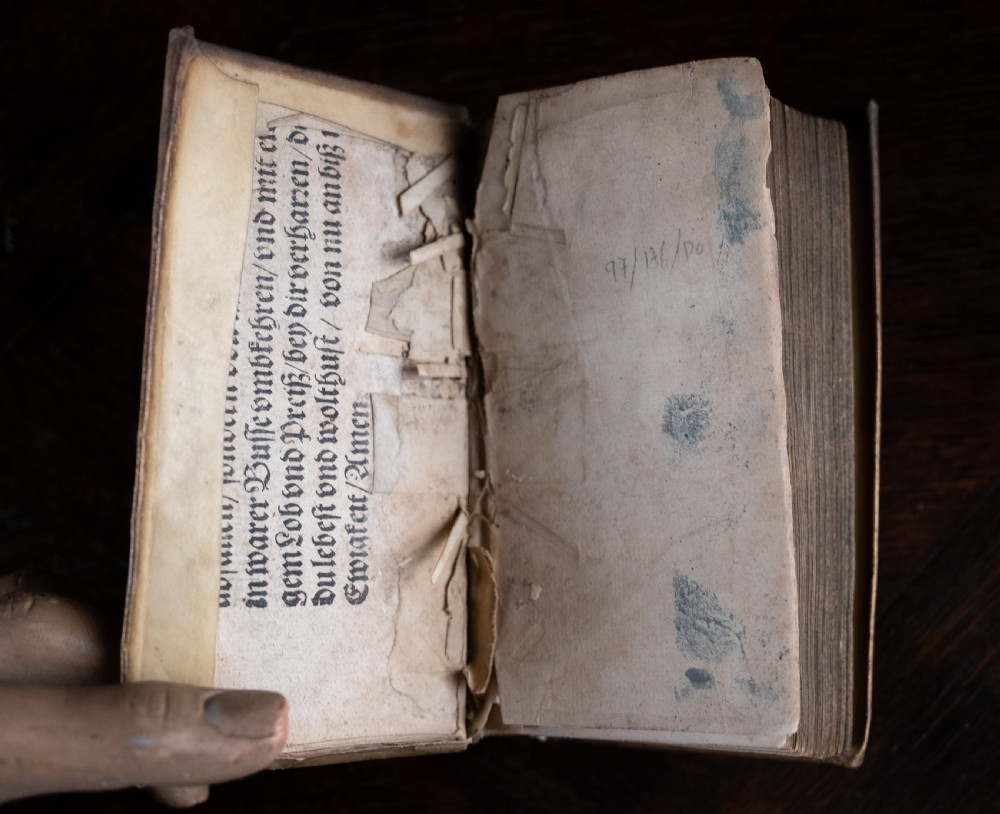 in warer Busse vmbkehren/ vnd mit
gem Lob vnd Preiß/ bey dir verharren/
du lebest vnd wolthust/ von nu an biß
Ewigkeit/ Amen
97/176/DO